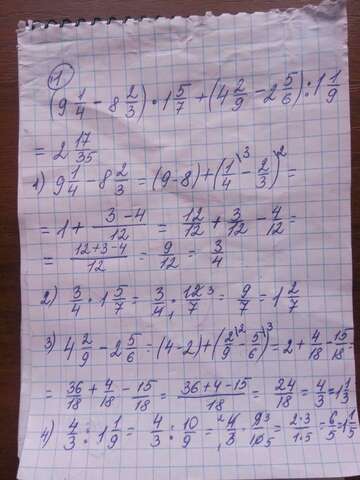 1
(9 1/4 - 8 2/3) · 1 5/7 + (4 2/9 - 2 5/6) : 1 1/9
= 2 17/35
1) 9 1/4 - 8 2/3 = (9-8) + (1/4 \3 - 2/3) \2 =
= 1 + (3-4)/12 = 12/12 + 3/12 - 4/12 =
= (12+3-4)/12 = 9/12 = 3/4
2) 3/4 · 1 5/7 = 3/4 1 · 12 3/7 = 9/7 = 1 2/7
3) 4 2/9 - 2 5/6 = (4-2) + (2/9 \2 - 5/6) \3 = 2 + 4/18 - 15/18 =
= 36/18 + 4/18 - 15/18 = (36+4-15)/18 = 24/18 = 4/3 = 1 1/3
4) 4/3 : 1 1/9 = 4/3 : 10/9 = 2 4/1 3 · 9 3/10 5 = 2·3/1·5 = 6/5 = 1 1/5